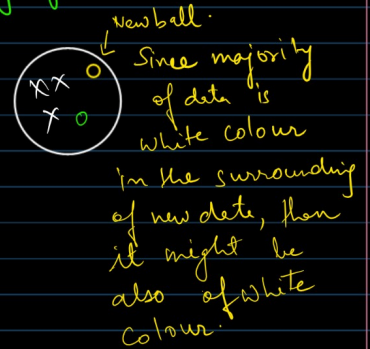 New ball.
Since majority
of data is
white colour
in the surrounding
of new data, then
it might be
also of white
colour.